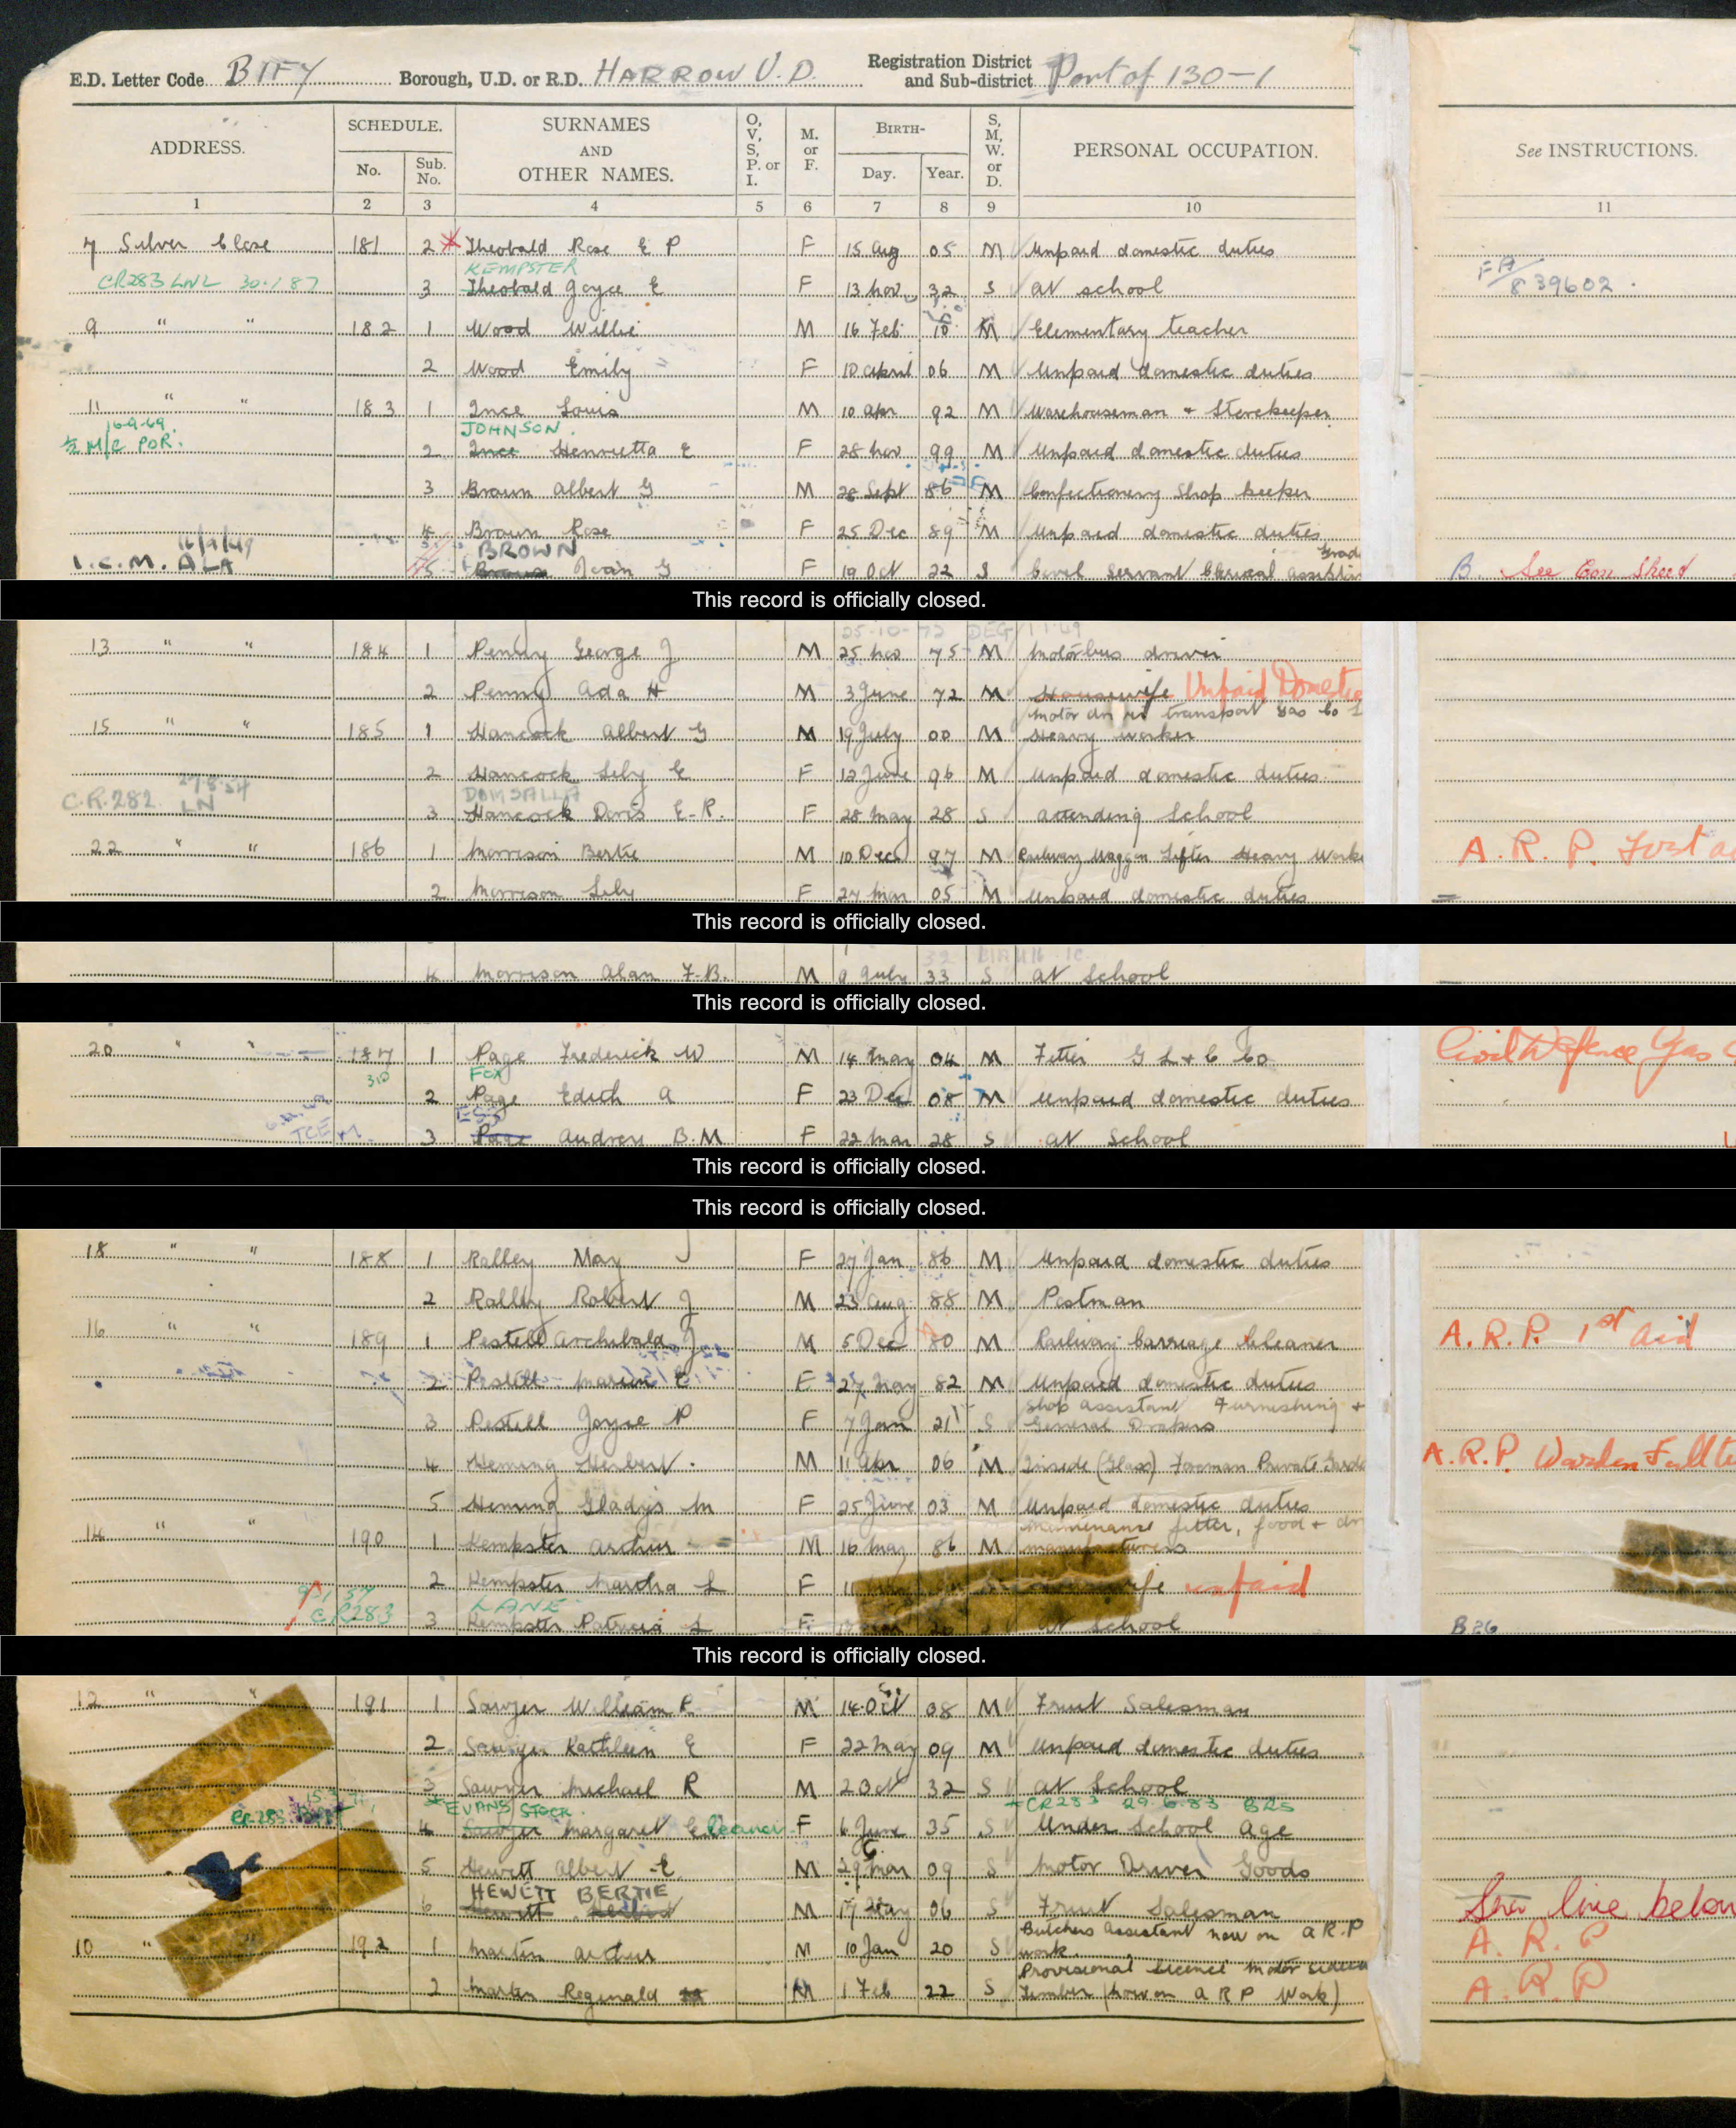 E.D. Letter Code BIFY Borough, U.D. or R.D. HARROW U.D. Registration District and Sub-district Part of 130-1
ADDRESS. SCHEDULE. No. Sub. No. SURNAMES AND OTHER NAMES. O, V, S, P. or I. M. or F. BIRTH- Day. Year. S, M, W. or D. PERSONAL OCCUPATION. See INSTRUCTIONS.
1 2 3 4 5 6 7 8 9 10 11
7 Silver Close 181 2 Theobald Rose E P F 15 Aug 05 M Unpaid domestic duties
KEMPSTER
CR283 LNL 30.1.87 3 Theobald Joyce E F 13 Nov 32 S at school FA/8 39602
9 " " 182 1 Wood Willie M 16 Feb 10 M Elementary teacher
2 Wood Emily F 10 April 06 M Unpaid domestic duties
11 " " 183 1 Ince Louis M 10 Apr 92 M Warehouseman + Storekeeper
16-9-69 JOHNSON
M/C POR. 2 Ince Henrietta E F 28 Nov 99 M Unpaid domestic duties
3 Braun Albert G M 28 Sept 86 M Confectionery Shop keeper
4 Braun Rose F 25 Dec 89 M Unpaid domestic duties
16/9/49 BROWN Grade
I.C.M. ALA 5 Braun Jean G F 19 Oct 22 S Civil Servant Clerical B. See Conn Sheet
This record is officially closed.
25-10-72
13 " " 184 1 Penny George J M 25 Nov 75 M Motorbus driver
2 Penny Ada H M 3 June 72 M Housewife Unpaid Domestic
Motor driver transport Gas Co
15 " " 185 1 Hancock Albert G M 19 July 00 M Heavy worker
2 Hancock Lily E F 12 June 96 M Unpaid domestic duties
27-8-54 DOMSALLA
C.R.282 LN 3 Hancock Doris E.R. F 28 May 28 S attending School
22 " " 186 1 Morrison Bertie M 10 Dec 97 M Railway Waggon Lifter Heavy Worke A.R.P. First
2 Morrison Lily F 27 Mar 05 M Unpaid domestic duties
This record is officially closed.
4 Morrison Alan F.B. M 9 July 33 S at School
This record is officially closed.
20 " " 187 1 Page Frederick W M 14 May 04 M Fitter G L & C Co Civil Defence Gas
FOX
2 Page Edith A F 23 Dec 08 M Unpaid domestic duties
3 Page Audrey B.M F 22 Mar 28 S at School
This record is officially closed.
This record is officially closed.
18 " " 188 1 Ralley May F 27 Jan 86 M Unpaid domestic duties
2 Ralley Robert J M 23 Aug 88 M Postman
16 " " 189 1 Pestell Archibald J M 5 Dec 80 M Railway Carriage Cleaner A.R.P. 1st Aid
2 Pestell Marion E F 27 May 82 M Unpaid domestic duties
Shop assistant Furnishing +
3 Pestell Joyce P F 7 Jan 21 S General Drapers
4 Heming Herbert M 11 Apr 06 M Inside (Glass) Foreman Private Garde A.R.P. Warden Full
5 Heming Gladys M F 25 June 03 M Unpaid domestic duties
Maintenance fitter, food +
14 " " 190 1 Kempster Arthur M 16 May 86 M manufacturers
2 Kempster Martha L F 11 unpaid
LANE
CR283 3 Kempster Patricia L F at School B26
This record is officially closed.
12 " " 191 1 Sawyer William F M 14 Oct 08 M Fruit Salesman
2 Sawyer Kathleen E F 22 May 09 M Unpaid domestic duties
3 Sawyer Michael R M 2 Oct 32 S at School
EVANS STOCK CR283 29.6.83 BRS
CR283 4 Sawyer Margaret Eleanor F 6 June 35 S Under School Age
5 Hewett Albert E M 29 Mar 09 S Motor Driver Goods
HEWETT BERTIE
6 Hewett M 17 May 06 S Fruit Salesman See line below
Butchers Assistant now on A R P
10 " 192 1 Martin Arthur M 10 Jan 20 S work A.R.P
Provisional licence Motor
2 Martin Reginald M 1 Feb 22 S Timber (now on A R P Work) A.R.P